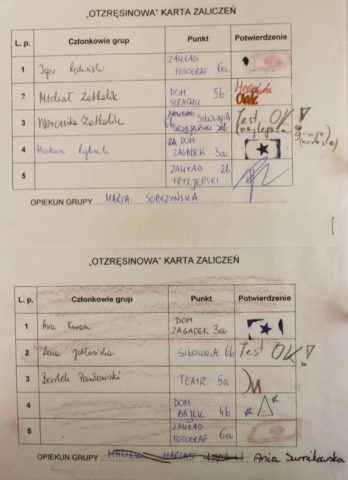 „OTZRĘSINOWA” KARTA ZALICZEŃ
L. p. Członkowie grup Punkt Potwierdzenie
1 Igor ZAKŁAD FOTOGRAF 6a
2 Michał Zetholik DOM STRACHU 5b
3 Weronika Zethalik SIŁOWNIA 6b Test OK! (najlepsza grupa
4 DOM ZAGADEK 3a
5 ZAKŁAD FRYZJERSKI
OPIEKUN GRUPY MARTA SOBCZYŃSKA
„OTZRĘSINOWA” KARTA ZALICZEŃ
L. p. Członkowie grup Punkt Potwierdzenie
1 Ana DOM ZAGADEK 3a
2 Lena SIŁOWNIA 6b Test OK!
3 Bartek TEATR 5a
4 DOM BAJEK 4b
5 ZAKŁAD FOTOGRAF 6a
OPIEKUN GRUPY Ania Surnikowska